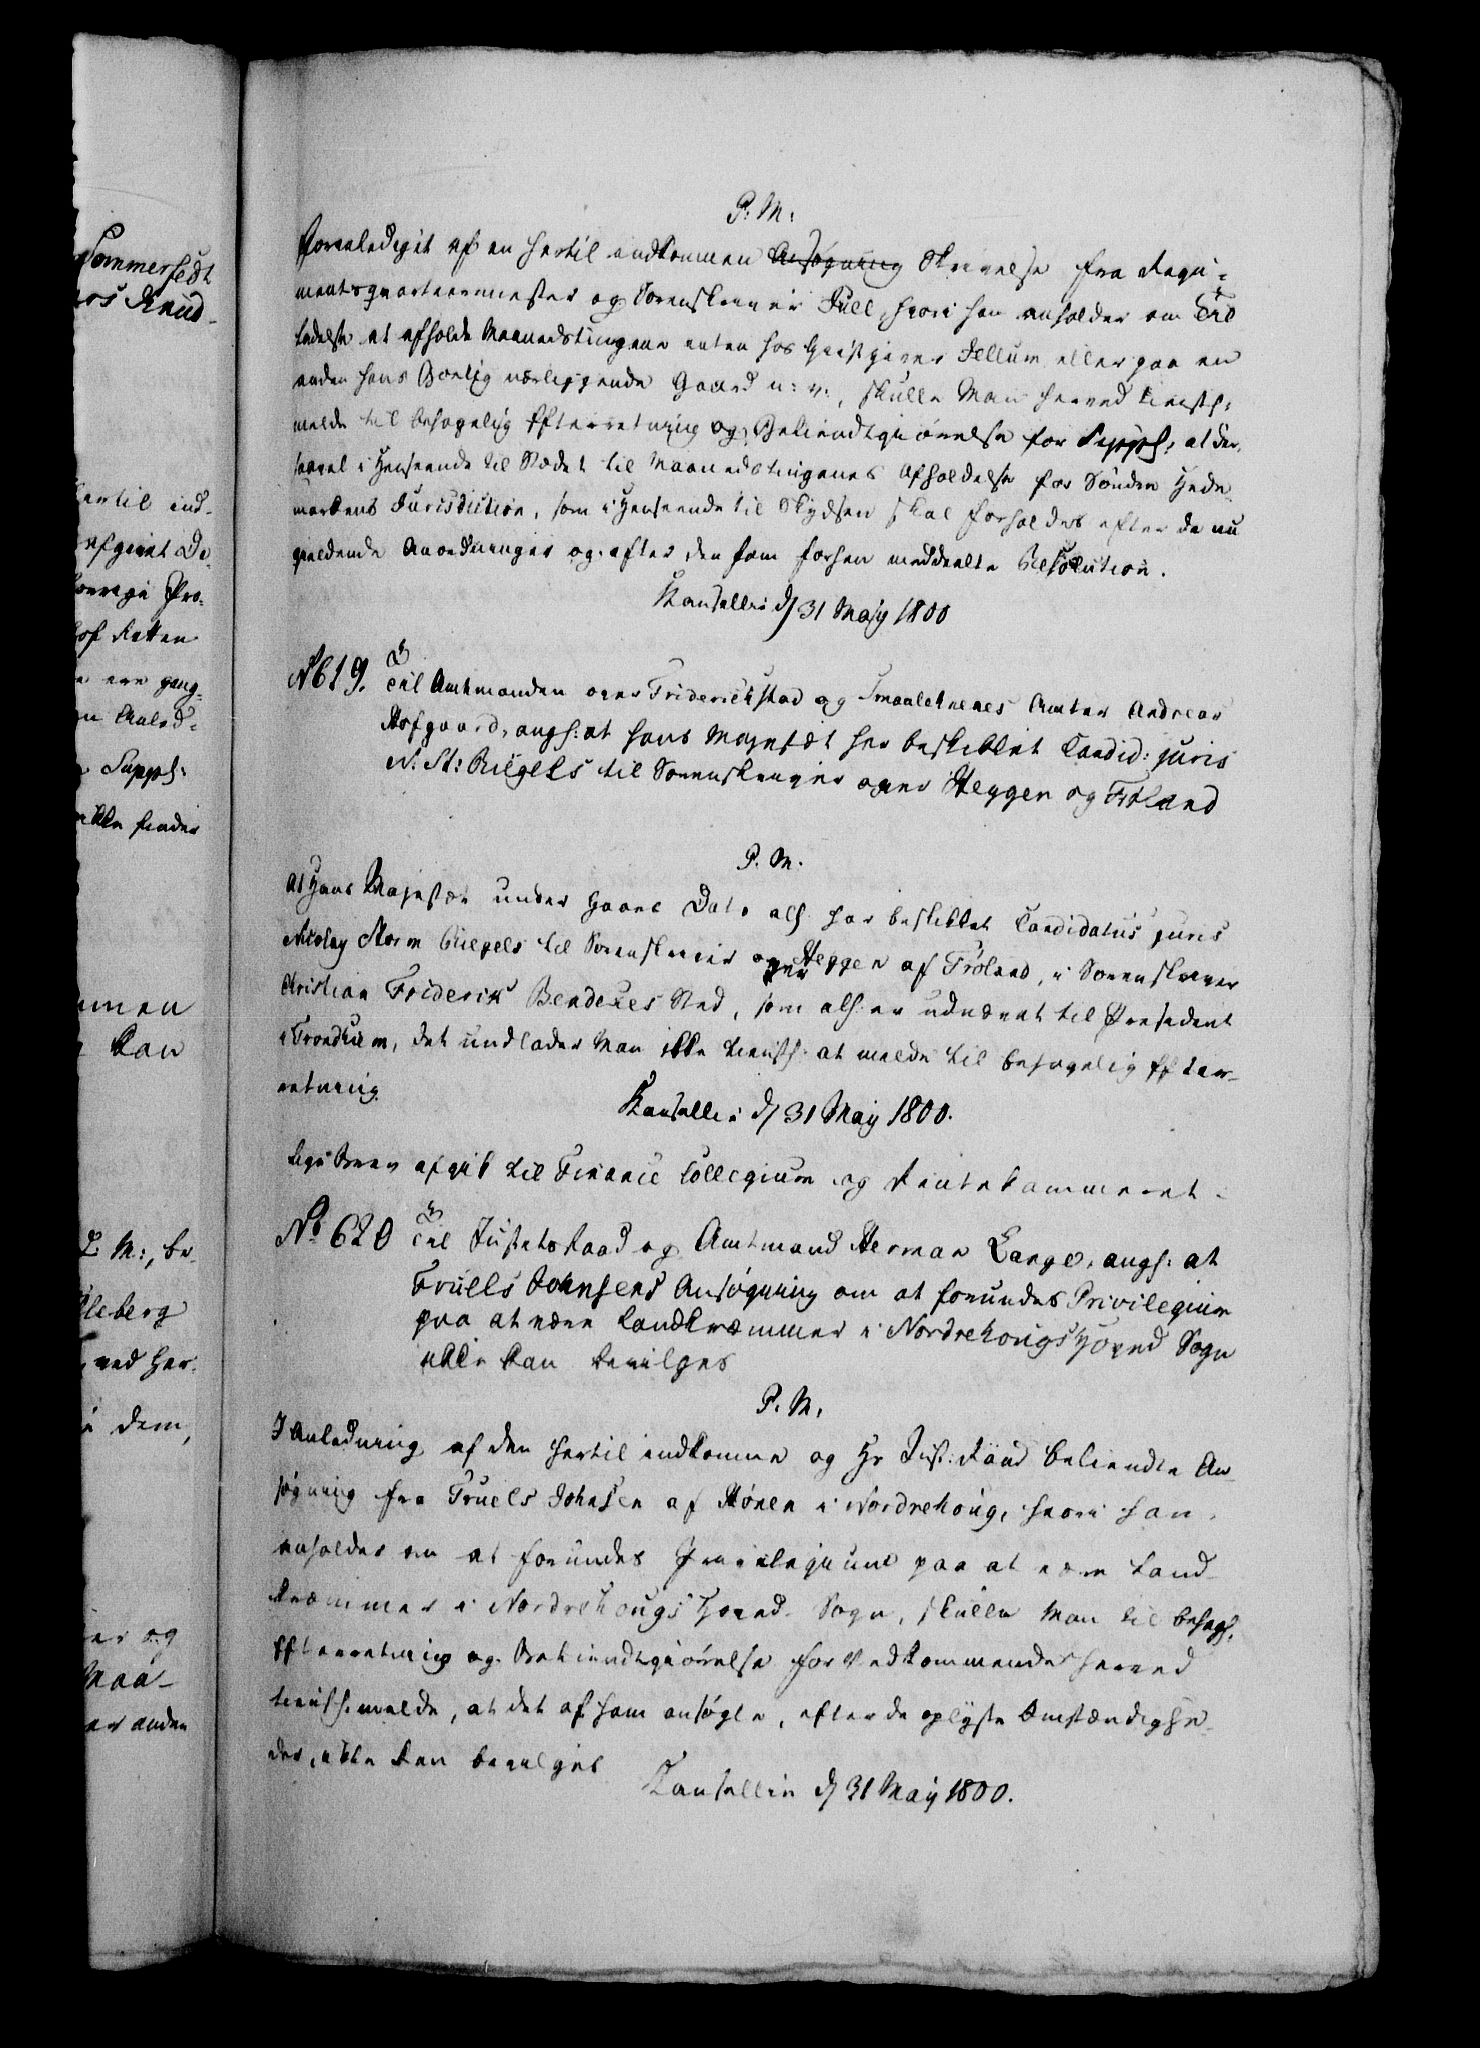 Sommerfeldt
hos Knud-
hertil ind-
afgivet De-
Pro-
hos Retten
gang-
Anled-
Suppl:
ikke finder
kan
P. M:, be-
lleberg
ved her-
i dem,
og
Maa-
anden
P: M:
Foranlediget af en hertil indkommen Ansøgning Skrivelse fra Regi-
mentsqvarteermester og Sorenskriver Juell, hvori han anholder om Til-
ladelse at afholde Maanedstingene enten hos Giestgiver Jellum eller paa en
anden hans Boelig nærliggende Gaard u: v:, skulle Man herved tienstl:
melde til behagelig Efterretning og Bekiendtgiørelse for Suppl:, at der,
saavel i Henseende til Stedet til Maanedstingenes Afholdelse for Sønden Hede-
markens Jurisdiction, som i Henseende til Skydsen skal forholdes efter de nu
gieldende Anordninger og efter den ham forhen meddeelte Resolution.
Kancelliet d 31 May 1800
No 619. Til Amtmanden over Friderichstad og Smaalehnenes Amter Andreas
Hofgaard, angl: at Hans Majestæt har beskikket Candid: juris
N. St: Riegels til Sorenskriver over Heggen og Frøland
P. M.
At Hans Majestæt under Gaars Dato all: har beskikket Candidatus juris
Nicolay Storm Riegels til Sorenskriver over Heggen og Frøland, i Sorenskriver
Christian Friderik Bendekes Sted, som all: er udnævnt til Præsident
i Trondhiem, det undlader Man ikke tienstl: at melde til behagelig Efter-
retning.
Kancelliet d 31 May 1800.
Lige Brev afgik til Finance Collegium og Rentekammeret.
No 620 Til Justitsraad og Amtmand Herman Lange, angl: at
Truells Johnsens Ansøgning om at forundes Privilegium
paa at være Landkræmmer i Nordrehougs Hoved Sogn
ikke kan bevilges
P. M.
I Anledning af den hertil indkomne og Hr Just: Raad bekiendte An-
søgning fra Truels Johnsen af Hønen i Nordrehoug, hvori han
anholder om at forundes Privilegium paa at være Land-
kræmmer i Nordrehougs Hoved-Sogn, skulle Man til behagl:
Efterretning og Bekiendtgiørelse for Vedkommende herved
tienstl: melde, at det af ham ansøgte, efter de oplyste Omstændighe-
der, ikke kan bevilges
Kancelliet d 31 May 1800.